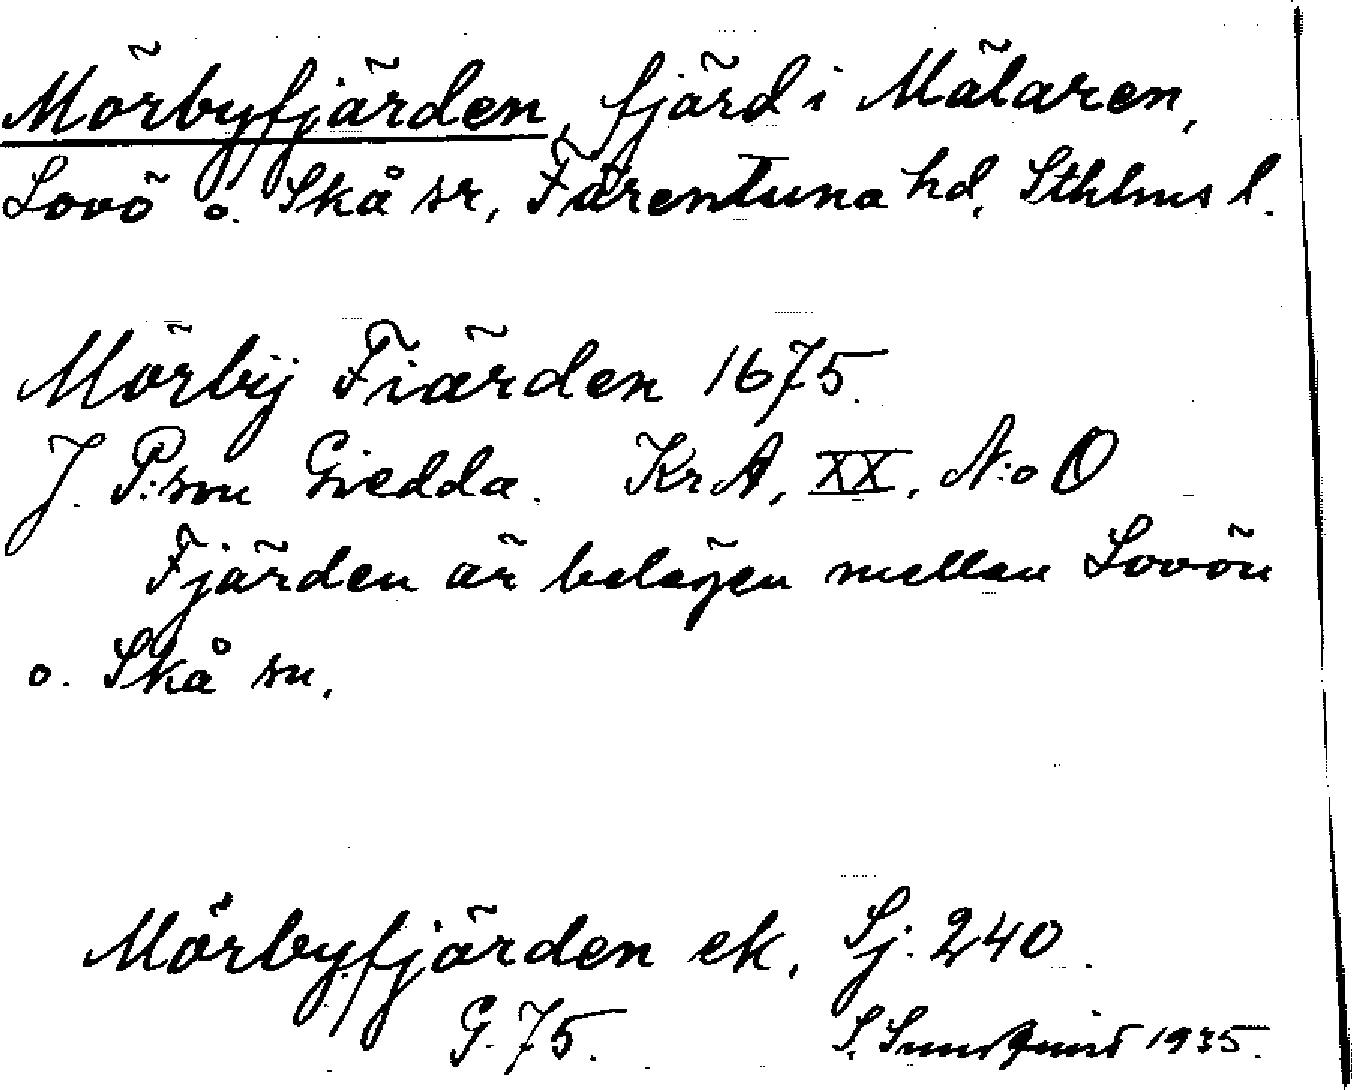 Mörbyfjärden, fjärd i Mälaren,
Lovö o. Skå sr, Färentuna hd, Sthlms l.
Mörbÿ Fiärden 1675.
J. P:son Giedda. KrA, XX, N:o O
Fjärden är belägen mellan Lovön
o. Skå sn.
Mörbyfjärden ek. Sj. 240.
G. 75. S. Sundquist 1935.